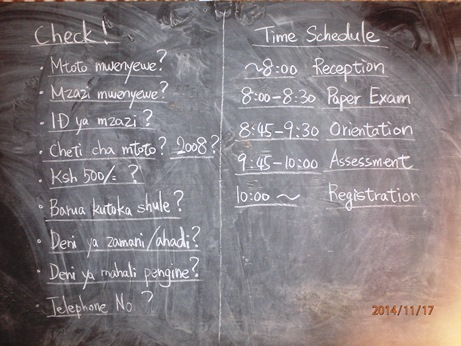 Check!
· Mtoto mwenyewe?
· Mzazi mwenyewe?
· ID ya mzazi?
· Cheti cha mtoto? 2008?
· Ksh 500/= ?
· Barua kutoka shule?
· Deni ya zamani/ahadi?
· Deni ya mahali pengine?
· Telephone No ?
Time Schedule
~8:00 Reception
8:00-8:30 Paper Exam
8:45-9:30 Orientation
9:45-10:00 Assessment
10:00 ~ Registration
2014/11/17